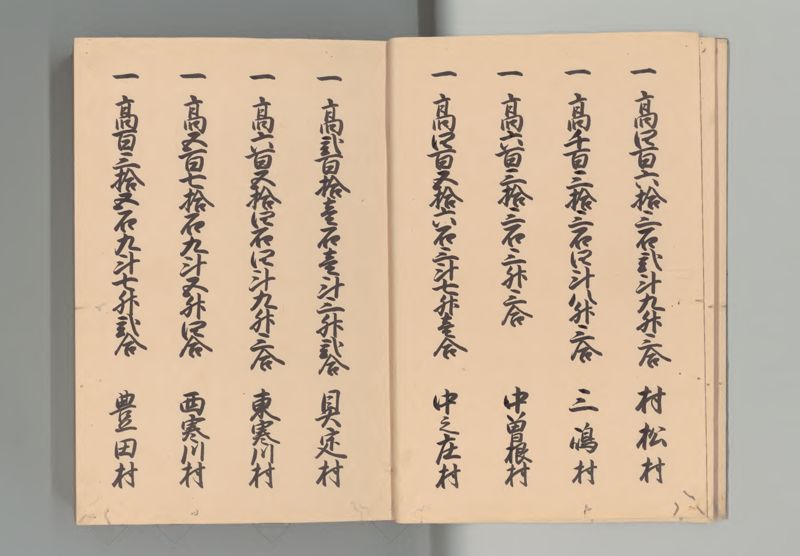 一 高四百六拾三石弐斗九升三合 村松村
一 高千百三拾三石四斗八升三合 三嶋村
一 高六百三拾三石三升三合 中曽根村
一 高四百五拾六石三斗七升壱合 中之庄村
一 高弐百拾壱石壱斗三升弐合 具定村
一 高六百五拾四石四斗九升三合 東寒川村
一 高五百七拾石九斗五升四合 西寒川村
一 高百三拾五石九斗七升弐合 豊田村